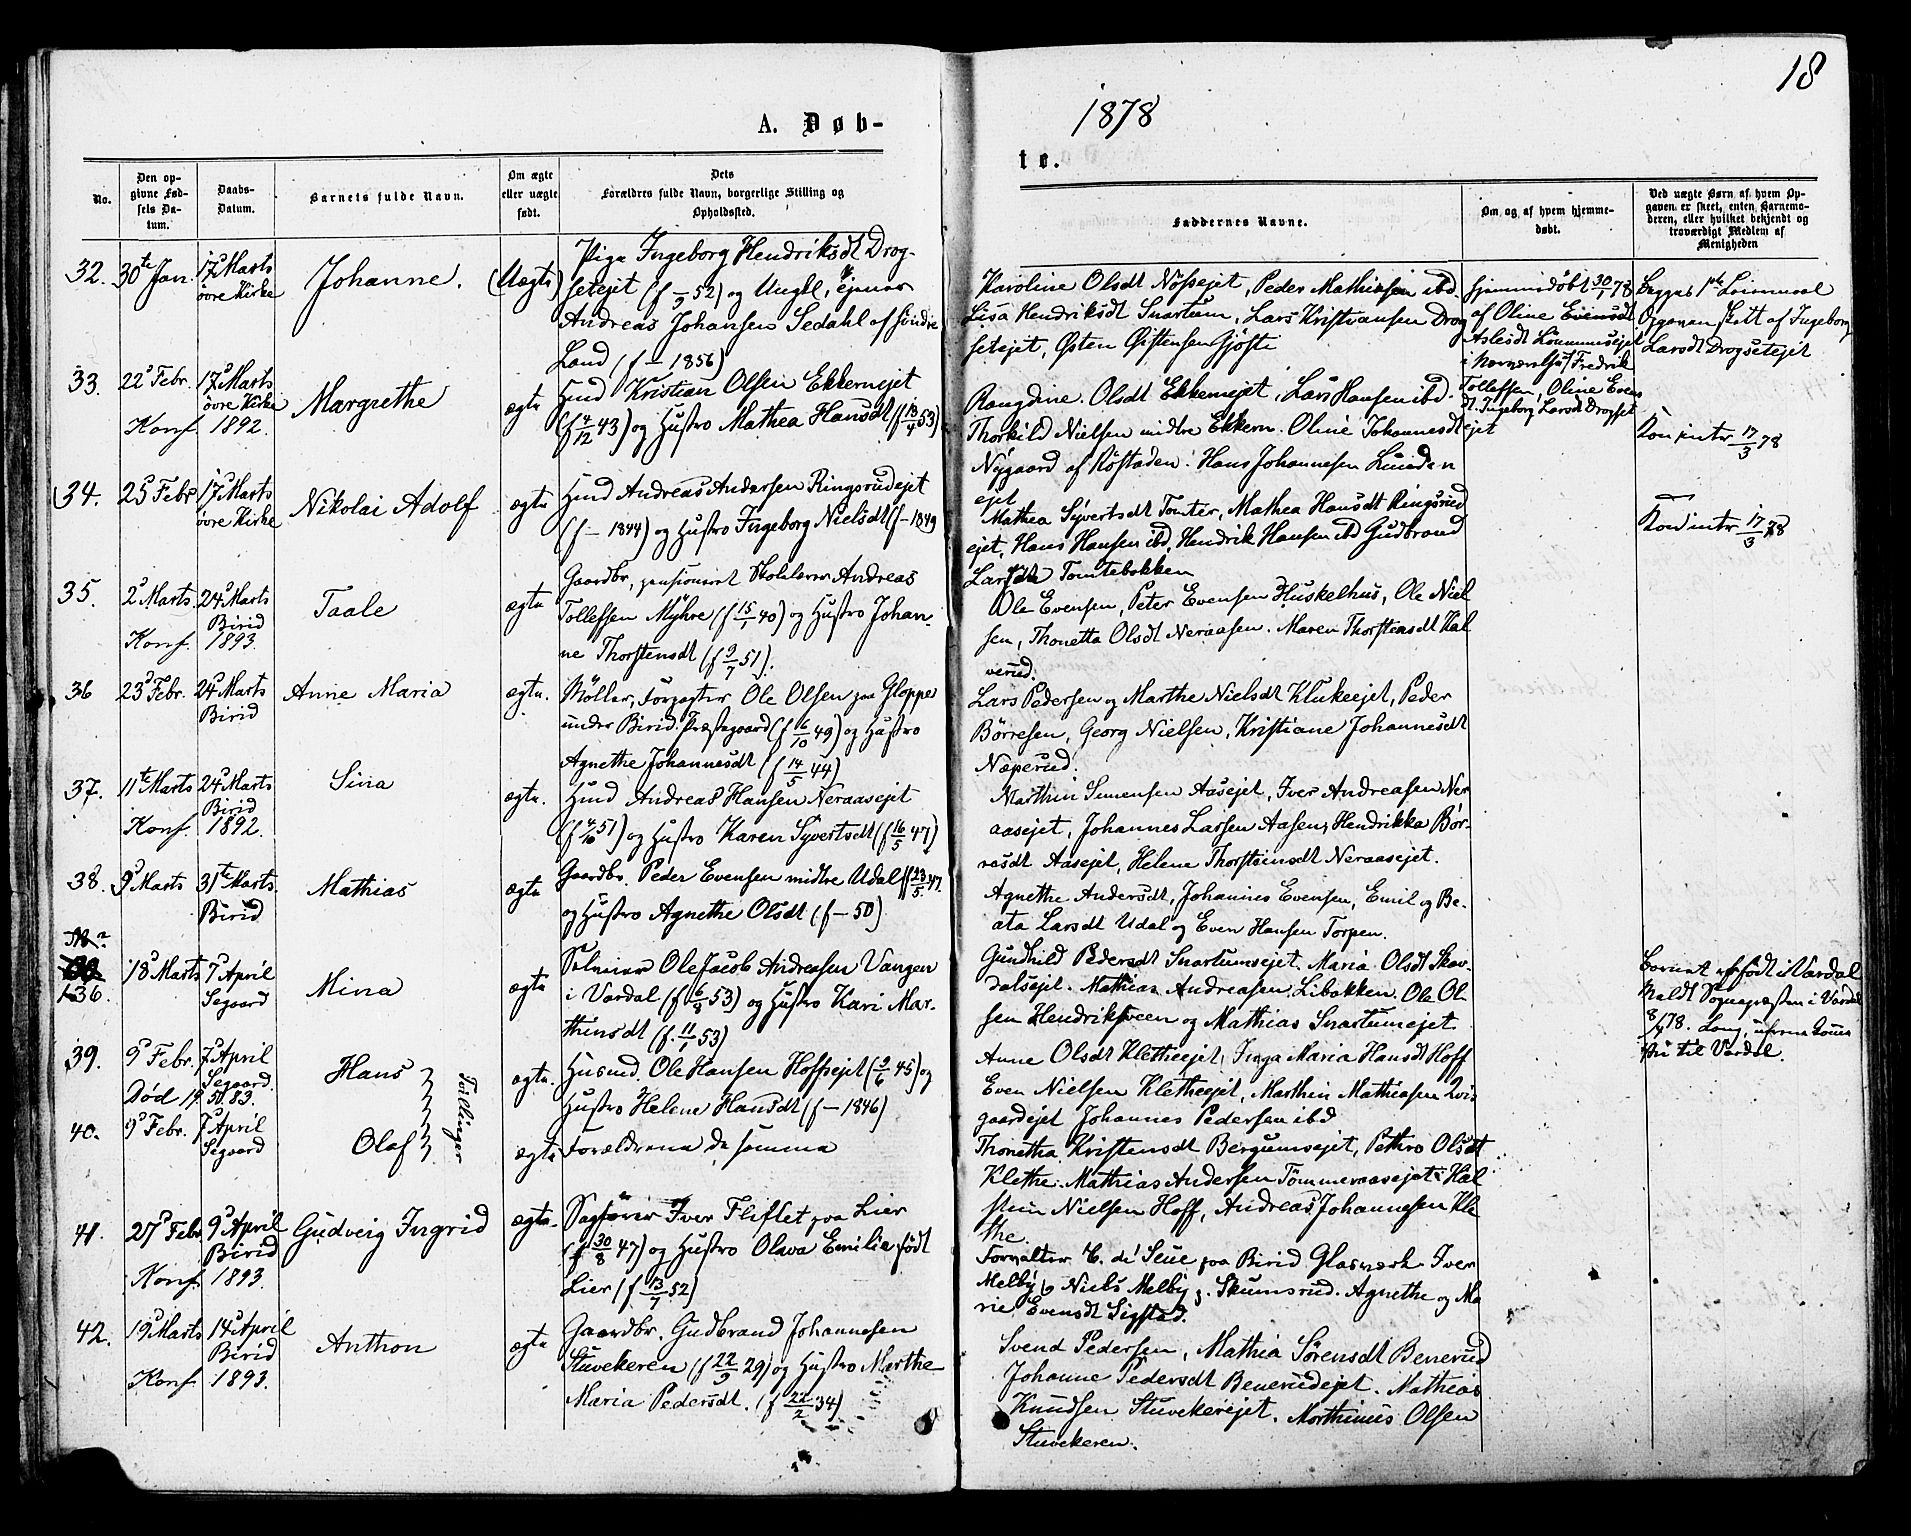 18
A. Døb-
1878
te.
No.
Den op-
givne Fød-
sels Da-
tum.
Daabs-
Datum.
Barnets fulde Navn.
Om ægte
eller uægte
født.
Dets
Forældres fulde Navn, borgerlige Stilling og
Opholdssted.
Faddernes Navne.
Om og af hvem hjemme-
døbt.
Ved uægte Børn af hvem Op-
gaven er skeet, enten Barnemo-
deren, eller hvilket bekjendt og
troværdigt Medlem af
Menigheden
32. 30te Jan. 17d Marts
øvre Kirke
Johanne.
(Uægte)
Pige Ingeborg Hendriksdt Drog-
setejet (f 52) og Ungk, Ejnar
Andreas Johansen Sedahl af søndre
Land (f – 1856)
Karoline Olsdt Nøssejet, Peder Mathiasen ibd
Lisa Hendriksdt Snartum, Lars Kristiansen Drog
setejet, Østen Østensen Gjøste
Hjemmedøbt 30/1 78
af Oline Evensdt
i Fredrik
Tollefsen, Oline Evens
dt, Ingeborg Larsdt Drogset
ejet
Begges 1ste Leiermaal
Opgaven skett af Ingeborg
Larsdt Drogsetejet
33. 22d Febr. 17d Marts
øvre Kirke
Konf. 1892.
Margrethe
ægte
Husmd Kristian Olsen Ekkernejet
(f 4/12 43) og Hustro Mathea Hansdt (f 13/4 53)
Rangdine Olsdt Ekkernejet, Lars Hansen ibd.
Thorkild Nielsen midtre Ekkern. Oline Johannesdt
Nygaard af Røstaden. Hans Johannesen Linden
ejet
Kon intr 17/3 78
34. 25 Febr 17d Marts
øvre Kirke
Nikolai Adolf
ægte
Husmd Andreas Andersen Ringsrudejet
(f – 1844) og Hustro Ingeborg Nielsdt (f – 1849
Mathea Syvertsdt Tomter, Mathea Hansdt Ringsrud
ejet, Hans Hansen ibd, Hendrik Hansen ibd Gudbrand
Larsdt Tomtebakken
Kon intr 17/3 78
35. 2d Marts. 24d Marts
Birid
Konf. 1893.
Taale
ægte
Gaardbr, pensioneret Skolelærer Andreas
Tollefsen Myhre (f 15/1 40) og Hustro Johan-
ne Thorstensdt (f 9/7 51).
Ole Evensen, Peter Evensen Huskelhus, Ole Niel
sen, Thonetta Olsdt Neraasen. Maren Thorstensdt Kal
verud.
36 23d Febr. 24d Marts
Birid
Anne Maria
ægte.
Møller, Forpagter Ole Olsen paa Gloppe
under Birid Præstegaard (f 16/10 49) og Hustro
Agnethe Johannesdt (f 14/5 44)
Lars Pedersen og Marthe Nielsdt Klukeejet, Peder
Børresen, Georg Nielsen, Kristiane Johannesdt
Næperud.
37. 11te Marts 24d Marts
Birid
Konf. 1892.
Sina
ægte.
Husmd Andreas Hansen Neraasejet
(f 4/10 51) og Hustro Karen Syvertsdt (f 16/5 47)
Marthin Simensen Aasejet, Iver Andreasen Ner
aasejet, Johannes Larsen Aasen, Hendrikka Bør-
resdt Aasejet, Helene Thorsteinsdt Neraasejet.
38. 9d Marts 31te Marts.
Birid
Mathias
ægte
Gaardbr. Peder Evensen midtre Udal (f 23/5 47.
og Hustro Agnethe Olsdt (f – 50)
Agnethe Andersdt, Johannes Evensen, Emil og Be-
ata Larsdt Udal og Even Hansen Torpen.
136. 18d Marts 7d April
Segaard
Mina
ægte
Salmager Ole Jacob Andreasen Vangen
i Vardal (f 6/8 53) og Hustro Kari Mar-
thinsdt (f. 11/7 53)
Gunhild Pedersdt Snartumsejet. Maria Olsdt Skav-
dalsejet. Mathias Andreasen Libakken. Ole Ol
sen Hendriksveen og Mathias Snartumejet.
Barnet er født i Vardal
Meldt Sognepræsten i Vardal
8/4 78.
til Vardal.
39. 9d Febr. 7d April
Segaard.
Død 19 83.
Hans
Tvillinger
ægte.
Husmd. Ole Hansen Hoffsejet (9/6 45) og
Hustro Helene Hansdt (f – 1846)
Anne Olsdt Kletheejet, Inga Maria Hansdt Hoff
Even Nielsen Kletheejet, Marthin Mathiasen Qvis
gaardejet Johannes Pedersen ibd
40. 9d Febr. 7d April
Segaard
Olaf
ægte
Forældrene de samme
Thonetha Kristensdt Bergumsejet, Pethro Olsdt
Klethe. Mathias Andersen Tømmeraasejet. Hal
stein Nielsen Hoff, Andreas Johannesen Kle
the.
41. 27d Febr. 9d April
Birid
Konf. 1893.
Gudveig Ingrid
ægte.
Sagfører Iver Fliflet paa Lier
(f 30/8 47) og Hustro Olava Emilie, født
Lier (f 13/7 52)
Forvalter C. de Seue paa Birid Glasværk. Iver
Melby, Niels Melby, Skumsrud. Agnethe og Ma
rie Evensdt Sigstad.
42. 19d Marts 14d April
Birid
Konf. 1893.
Anthon
ægte
Gaardbr. Gudbrand Johannesen
Stuvekeren (f 22/9 29) og Hustro Marthe
Maria Pedersdt. (f 22/2 34)
Svend Pedersen, Mathia Sørensdt Benerud
Johanne Pedersdt Benerudejet. Mathias
Knudsen Stuvekerejet. Morthinus Olsen
Stuvekeren.